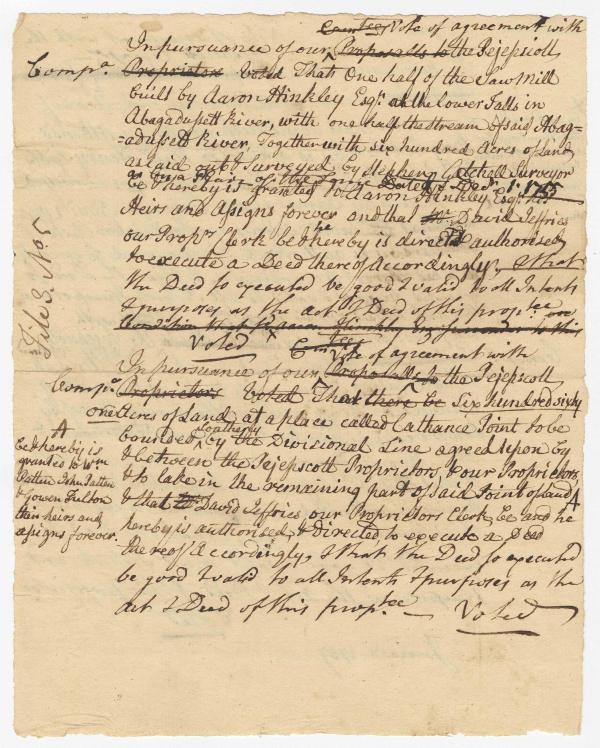 Comtees Vote of agreemt. with
In pursuance of our Proposalls to the Pejepscott
Compa. Proprietors Voted That One half of the Saw Mill
built by Aaron Hinkley Esqr. at the lower Falls in
Abagadusett River, with one half the stream of said Abag=
=adusett River, Together with six hundred Acres of Land
as laid out & Surveyed by Stephen Getchell Surveyor
be & hereby is granted to Aaron Hinkley Esqr. his
Heirs and Assigns forever and that Mr. David Jeffries
our Proprs. Clerk be & he hereby is directed & authorised
to execute a Deed thereof Accordingly, & that
the Deed so executed be good & valid to all Intents
& purposes as the act & Deed of this proptee
Voted
Comtees
Vote of agreement with
In pursuance of our Proposalls to the Pejepscott
Compa. Proprietors Voted That there be Six hundred sixty
one Acres of Land at a place called Cathance Point to be
bounded by the Divisional Line agreed upon by
& between the Pejepscott Proprietors, & our Proprietors,
& to take in the remaining part of said Point of Land A
& that Mr. David Jeffries our Proprietors Clerk be and he
hereby is authorised & directed to execute a Deed
thereof Accordingly, & that the Deed so executed
be good & valid to all Intents & purposes as the
act & Deed of this proptee Voted
A
be & hereby is
granted to Wm
Patten John Patten
& Gowen Fulton
their heirs and
assigns forever.
File 3. No 5